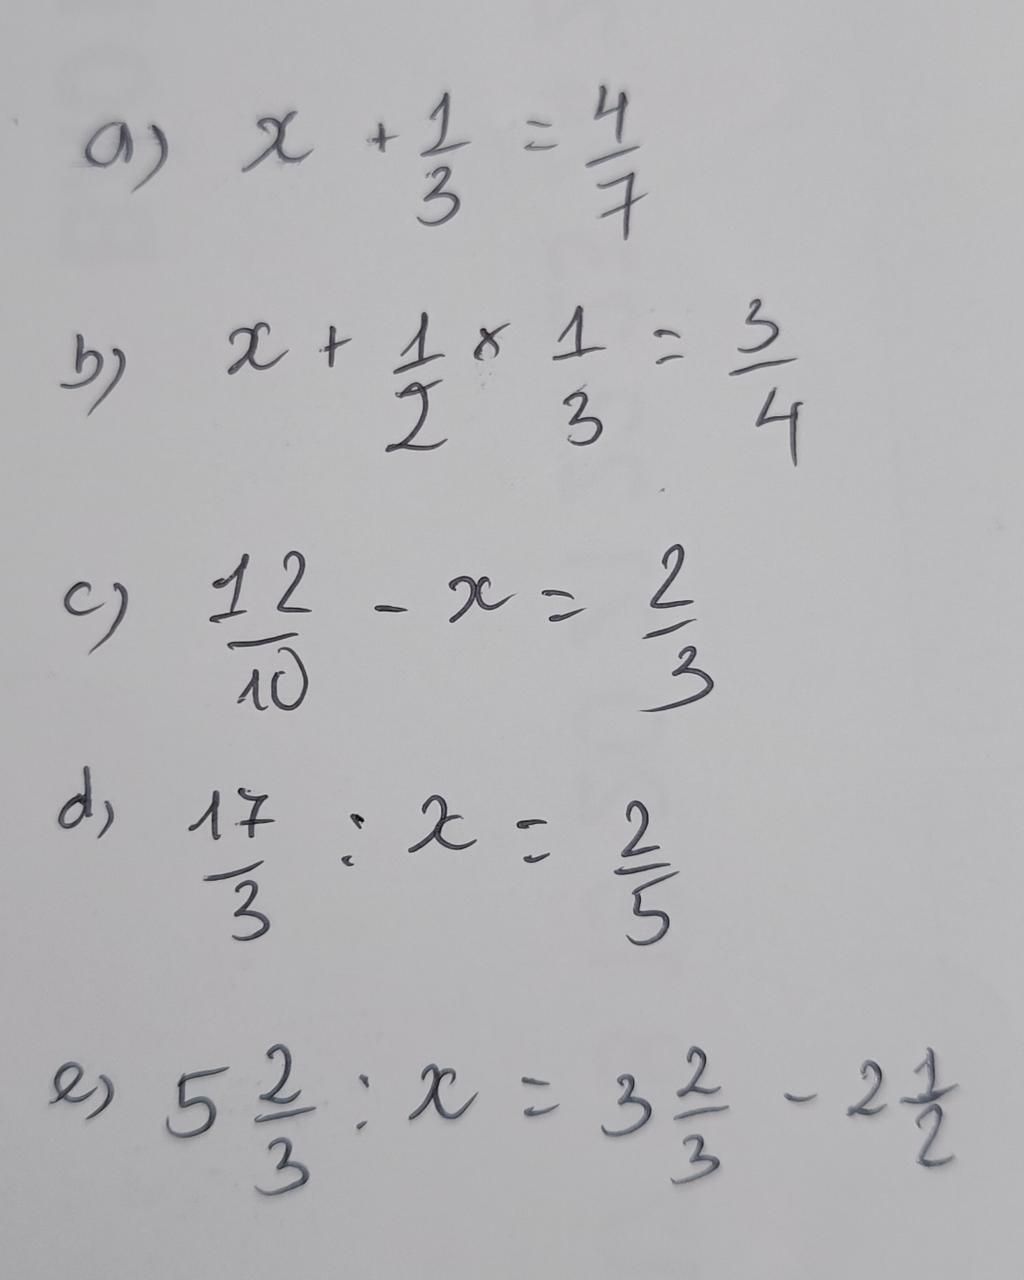 a) x + 1/3 = 4/7
b) x + 1/2 × 1/3 = 3/4
c) 12/10 - x = 2/3
d) 17/3 : x = 2/5
e) 5 2/3 : x = 3 2/3 - 2 1/2